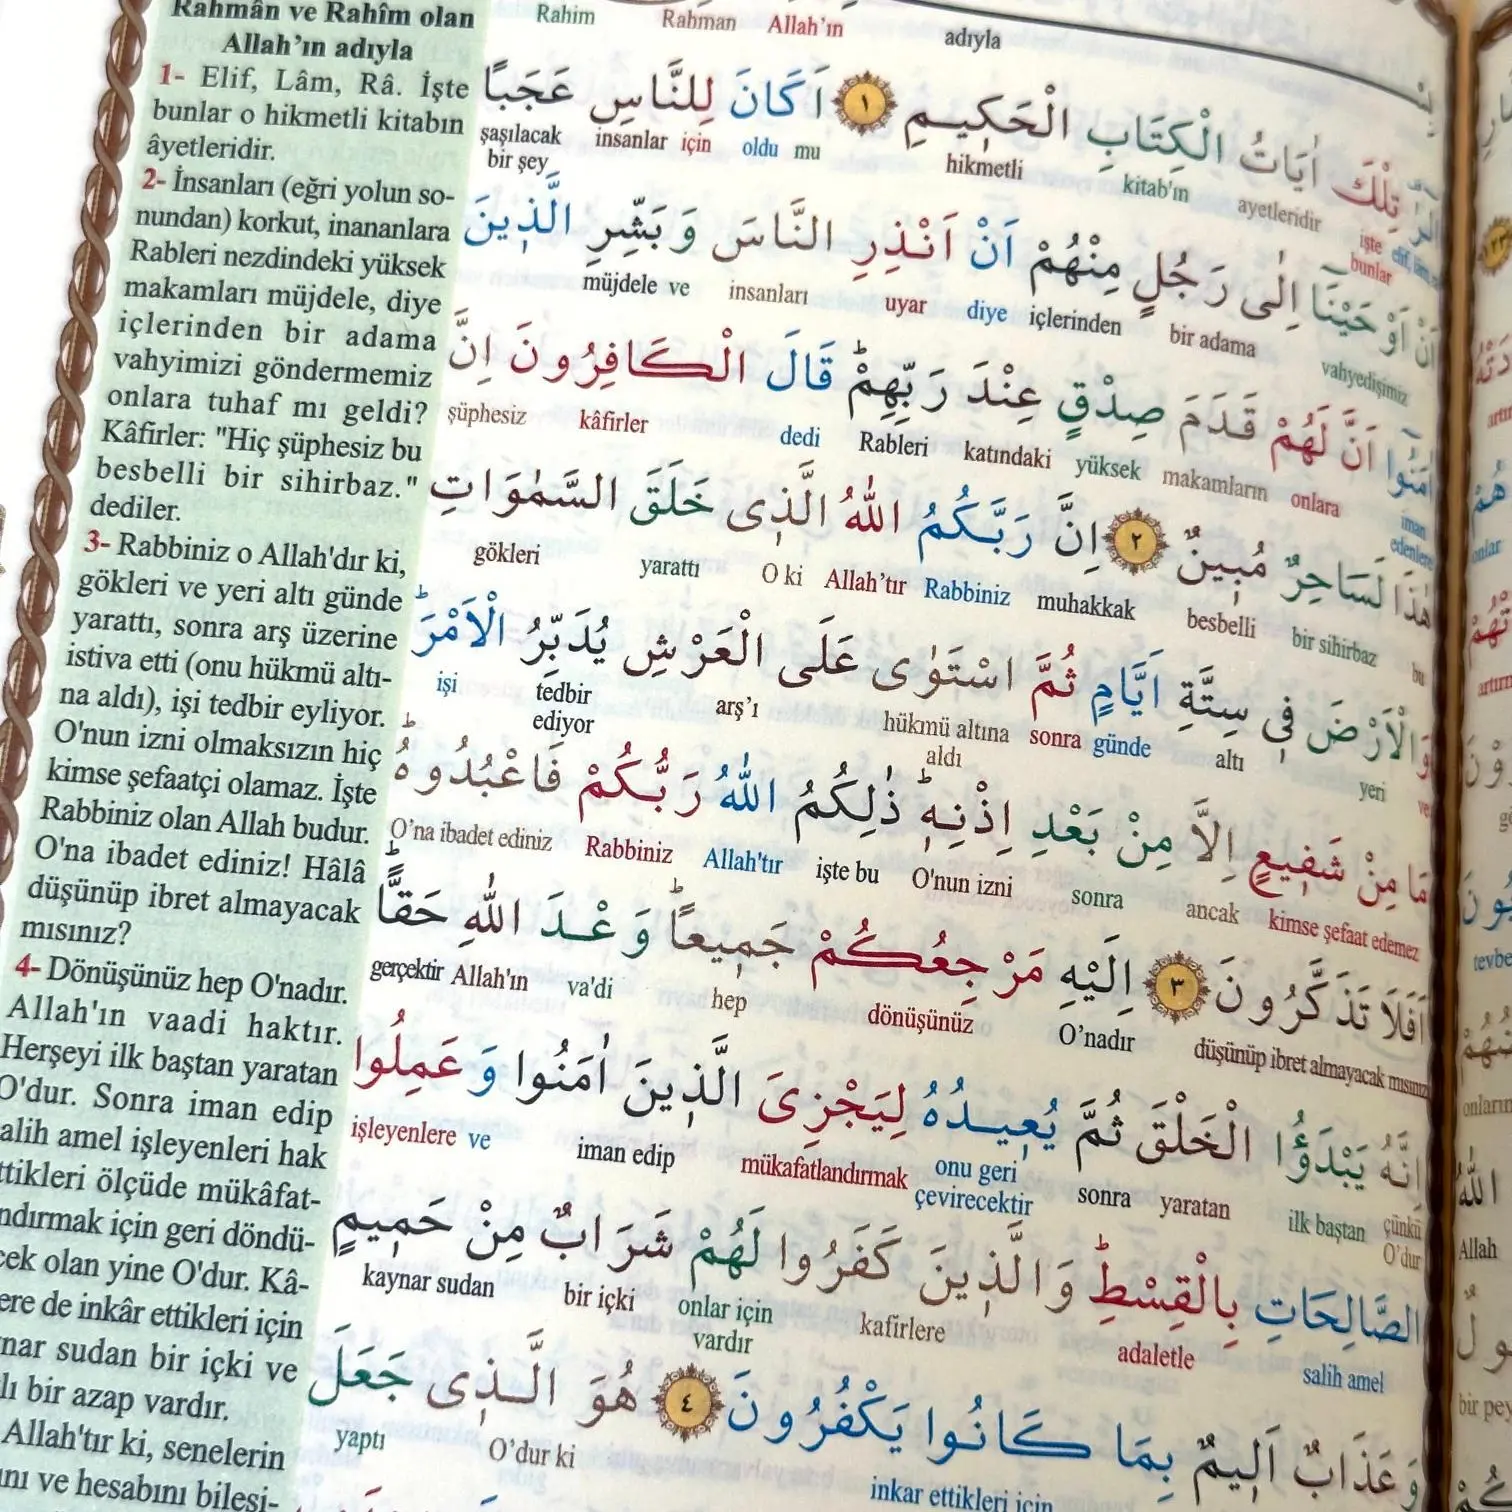 Rahmân ve Rahîm olan
Allah'ın adıyla
1- Elif, Lâm, Râ. İşte
bunlar o hikmetli kitabın
âyetleridir.
2- İnsanları (eğri yolun so-
nundan) korkut, inananlara
Rableri nezdindeki yüksek
makamları müjdele, diye
içlerinden bir adama
vahyimizi göndermemiz
onlara tuhaf mı geldi?
Kâfirler: "Hiç şüphesiz bu
besbelli bir sihirbaz."
dediler.
3- Rabbiniz o Allah'dır ki,
gökleri ve yeri altı günde
yarattı, sonra arş üzerine
istiva etti (onu hükmü altı-
na aldı), işi tedbir eyliyor.
O'nun izni olmaksızın hiç
kimse şefaatçi olamaz. İşte
Rabbiniz olan Allah budur.
O'na ibadet ediniz! Hâlâ
düşünüp ibret almayacak
mısınız?
4- Dönüşünüz hep O'nadır.
Allah'ın vaadi haktır.
Herşeyi ilk baştan yaratan
O'dur. Sonra iman edip
alih amel işleyenleri hak
ttikleri ölçüde mükâfat-
ndırmak için geri döndü-
cek olan yine O'dur. Kâ-
ere de inkâr ettikleri için
nar sudan bir içki ve
lı bir azap vardır.
Allah'tır ki, senelerin
ını ve hesabını bilesi-
adıyla Allah'ın Rahman Rahim
الٓرٰ تِلْكَ اٰيَاتُ الْكِتَابِ الْحَكِيمِ ١ اَكَانَ لِلنَّاسِ عَجَبًا
elif, lâm, işte bunlar ayetleridir kitab'ın hikmetli oldu mu insanlar için şaşılacak bir şey
اَنْ اَوْحَيْنَٓا اِلٰى رَجُلٍ مِنْهُمْ اَنْ اَنْذِرِ النَّاسَ وَبَشِّرِ الَّذ۪ينَ
vahyedişimiz bir adama içlerinden diye uyar insanları müjdele ve
اٰمَنُٓوا اَنَّ لَهُمْ قَدَمَ صِدْقٍ عِنْدَ رَبِّهِمْۜ قَالَ الْكَافِرُونَ اِنَّ
iman edenlere onlara makamların yüksek katındaki Rableri dedi kâfirler şüphesiz
هٰذَا لَسَاحِرٌ مُب۪ينٌ ٢ اِنَّ رَبَّكُمُ اللّٰهُ الَّذ۪ى خَلَقَ السَّمٰوَاتِ
bu bir sihirbaz besbelli muhakkak Rabbiniz Allah'tır O ki yarattı gökleri
وَالْاَرْضَ ف۪ى سِتَّةِ اَيَّامٍ ثُمَّ اسْتَوٰى عَلَى الْعَرْشِ يُدَبِّرُ الْاَمْرَۜ
ve yeri altı günde sonra hükmü altına aldı arş'ı tedbir ediyor işi
مَا مِنْ شَف۪يعٍ اِلَّا مِنْ بَعْدِ اِذْنِه۪ۜ ذٰلِكُمُ اللّٰهُ رَبُّكُمْ فَاعْبُدُوهُۜ
kimse şefaat edemez ancak sonra O'nun izni işte bu Allah'tır Rabbiniz O'na ibadet ediniz
اَفَلَا تَذَكَّرُونَ ٣ اِلَيْهِ مَرْجِعُكُمْ جَم۪يعًاۜ وَعْدَ اللّٰهِ حَقًّاۜ
düşünüp ibret almayacak mısınız O'nadır dönüşünüz hep va'di Allah'ın gerçektir
اِنَّهُ يَبْدَؤُا الْخَلْقَ ثُمَّ يُع۪يدُهُ لِيَجْزِىَ الَّذ۪ينَ اٰمَنُوا وَعَمِلُوا
çünkü O'dur ilk baştan yaratan sonra onu geri çevirecektir mükafatlandırmak iman edip ve işleyenlere
الصَّالِحَاتِ بِالْقِسْطِۜ وَالَّذ۪ينَ كَفَرُوا لَهُمْ شَرَابٌ مِنْ حَم۪يمٍ
salih amel adaletle kafirlere onlar için vardır bir içki kaynar sudan
وَعَذَابٌ اَل۪يمٌ بِمَا كَانُوا يَكْفُرُونَ ٤ هُوَ الَّذ۪ى جَعَلَ
inkar ettikleri için O'dur ki yaptı